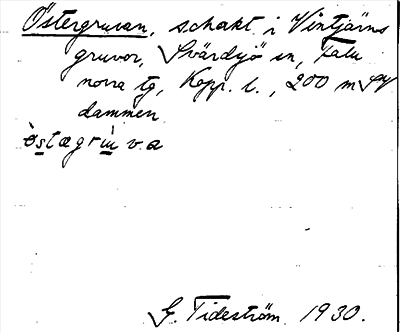 Östergruvan, schakt i Vintjärns
gruvor, Svärdsjö sn, Falu
norra tg, Kopp. l., 200 m SV
dammen
G. Tideström 1930.